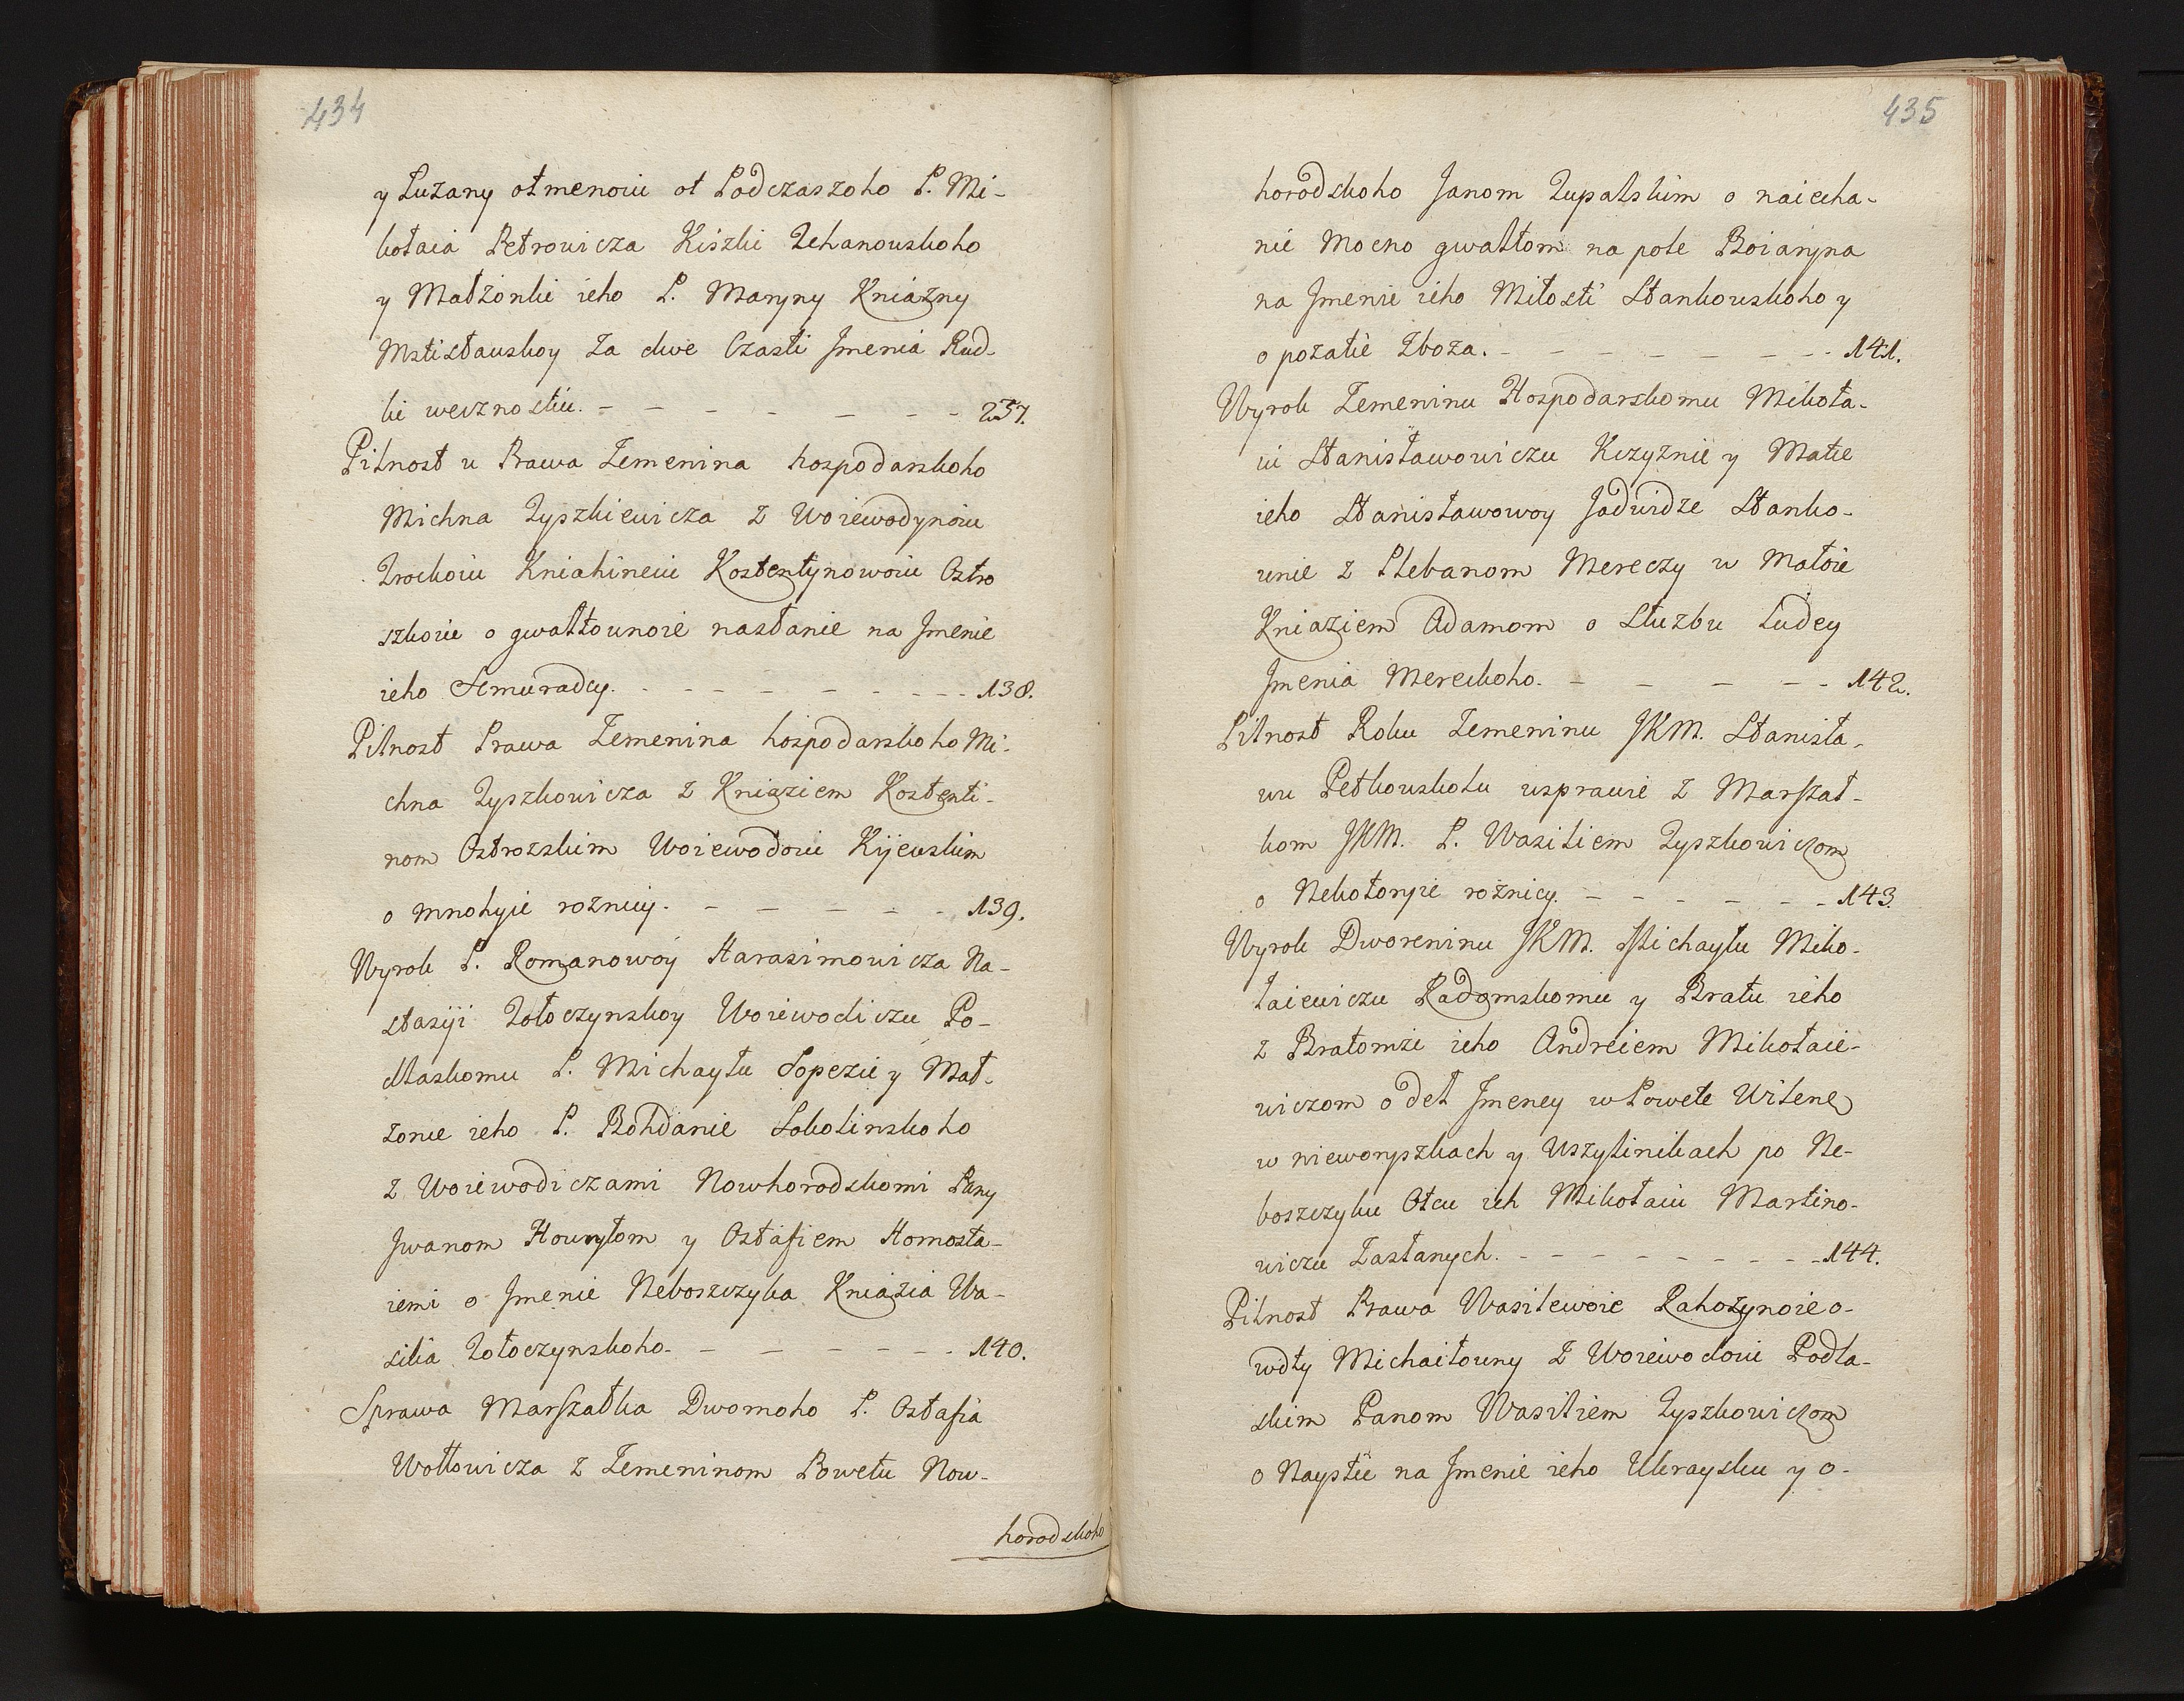 434
y Luzany otmenoiu ot Podczaszoho P. Mi-
kołaia Petrowicza Kiszki Zehanouskoho
y Małżonki ieho P. Maryny Kniażny
Mstisławskoy Za dwe Czasti Jmenia Rud-
ki wecznostiu. - - - - - - - 237.
Pilnost u Prawa Zemenina hospodarskoho
Michna Zyszkiewicza z Woiewodynoiu
Trockoiu Kniahineiu Kostentynowoiu Ostro
szkoiu o gwałtounoie nasłanie na Jmenie
ieho Semuradcy. - - - - - - - - 138.
Pilnost Prawa Zemenina hospodarskoho Mi-
chna Zyszkowicza z Kniaziem Kostenti-
nom Ostrozskim Woiewodoiu Kijewskim
o mnohyie roznicy. - - - - - 139.
Wyrok P. Romanowoy Harasimowicza Na-
stasiji Zołoczynskoy Woiewodiczu Po-
dlaskomu P. Michayłu Sopezie y Mał-
żonie ieho P. Bohdanie Sokolinskoho
z Woiewodiczami Nowhorodskomi Pany
Jwanom Hourylom y Ostafiem Homosta-
iemi o Jmenie Neboszczyka Kniazia Wa-
silia Zołoczynskoho. - - - - - - 140.
Sprawa Marszałka Dwornoho P. Ostafia
Wołłowicza z Zemeninom Powetu Now-
horodskoho
435
horodskoho Janom Zupalskim o naiecha-
nie Mocno gwałtom na pole Boiaryna
na Jmenie ieho Miłosti Stankouskoho y
o pozatie Zboza. - - - - - - - - 141.
Wyrok Zemeninu Hospodarskomu Mikoła-
iu Stanisławowiczu Kczyznie y Matce
ieho Stanisławowoy Jadwidze Stanko-
unie z Plebanom Mereczy w Matoie
Kniaziem Adamom o Słuzbu Ludey
Jmenia Mereckoho. - - - - - 142.
Pilnost Roku Zemeninu JKM. Stanisła-
wu Petkouskolu usprawie z Marszał-
kom JKM. P. Wasiliem Zyszkowiczom
o Nekotoryie rożnicy. - - - - - - 143.
Wyrok Dworeninu JKM. Michayłu Miko-
łaiewiczu Radomskomu y Bratu ieho
z Bratomże ieho Andreiem Mikołaie-
wiczom o deł Jmeney w Powete Witene
w nieworyszkach y Uszylinikach po Ne-
boszczyku Otcu ich Mikołaiu Martino-
wiczu Zastanych. - - - - - - - - 144.
Pilnost Prawa Wasilewoie Rahozynoie o-
wdły Michaiłouny Z Woiewodoiu Podla-
skim Panom Wasiliem Zyszkowiczom
o Nayśtie na Jmenie ieho Ukraysku y o-